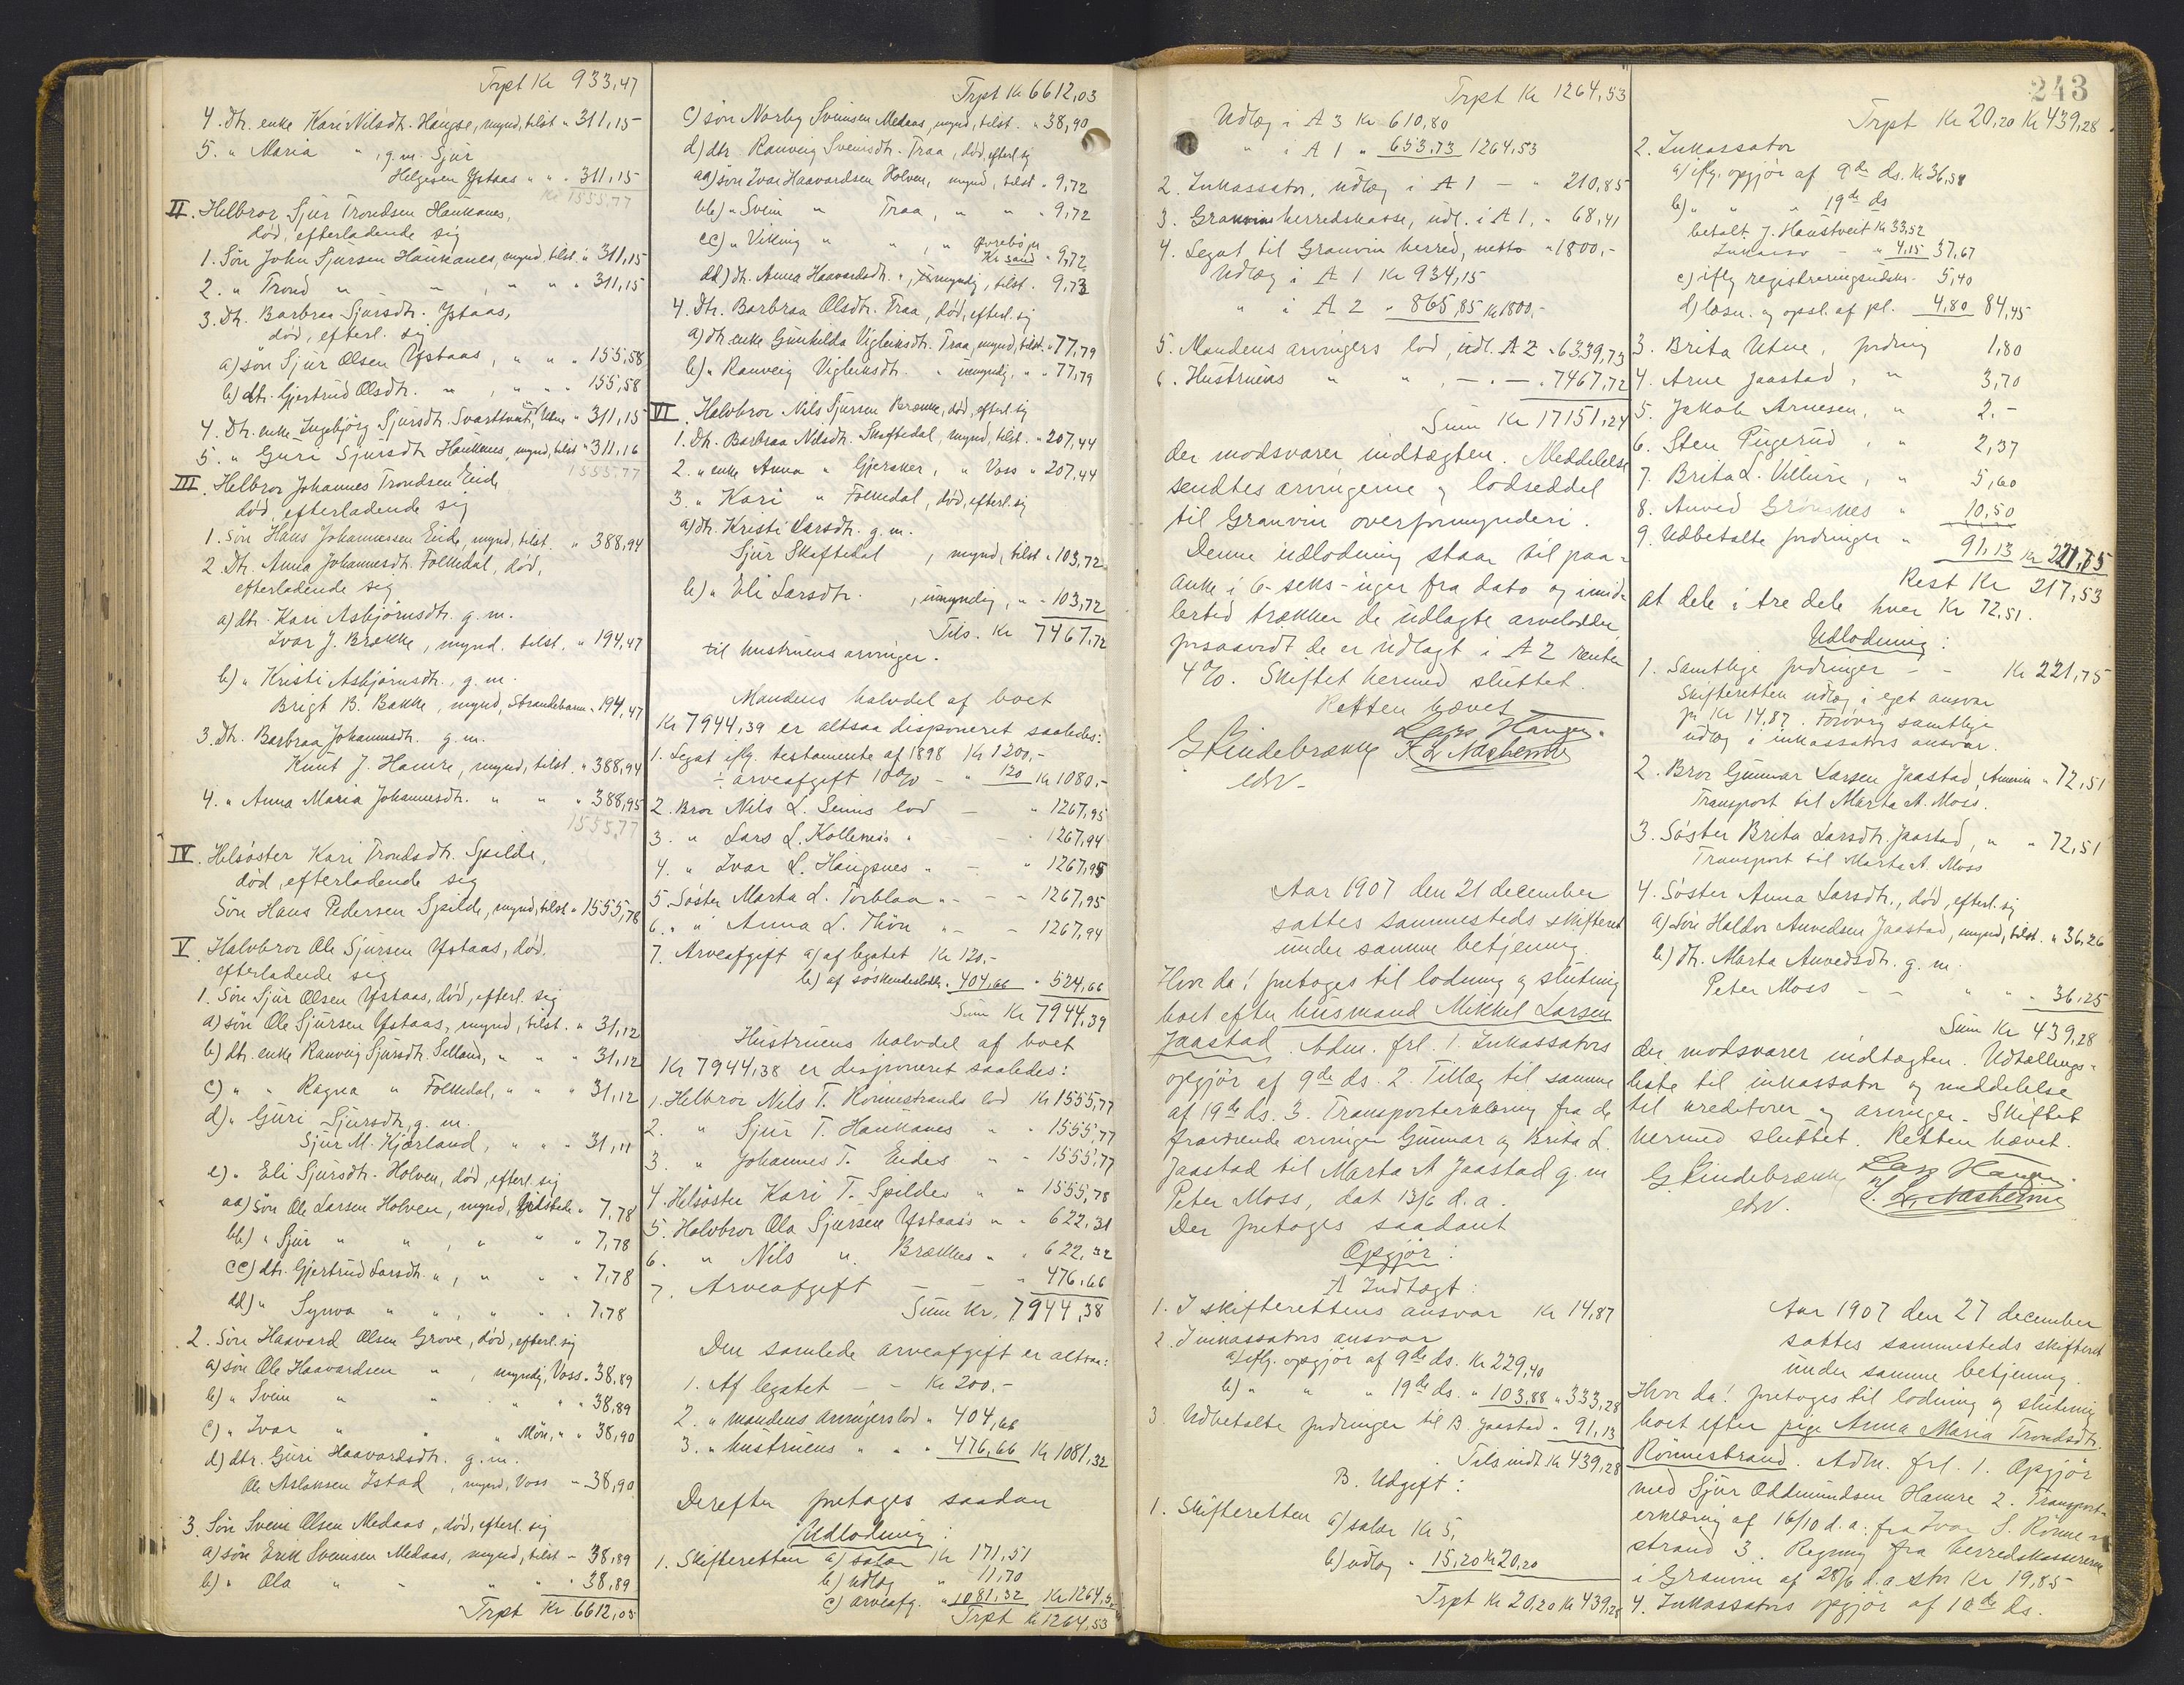 Trpt Kr 933,47
4. Dtr. enke Kari Nilsdtr. Hangse, mynd, tilst " 311,15
5. " Maria " , g.m. Sjur
Helgesen Ystaas " " " 311,15
Kr 1555,77
II. Helbror Sjur Trondsen Haukanes,
död, efterladende sig
1. Sön John Sjursen Haukanes, mynd, tilst. " 311,15
2. " Trond " - " , " " " 311,15
3. Dtr. Barbraa Sjursdtr. Ystaas,
död, efterl. sig
a) sön Sjur Olsen Ystaas, " " " 155,58
b) dtr. Gjertrud Olsdtr. " , " " " 155,58
4. Dtr. enke Ingebjörg Sjursdtr. Svarttveit, Utne " 311,15
5. " Guri Sjursdtr Haukanes, mynd, tilst " 311,16
1555,77
III. Helbror Johannes Trondsen Eide
död, efterladende sig
1. Sön Hans Johannessen Eide, mynd, tilst. " 388,94
2. Dtr. Anna Johannesdtr. Folkedal, död,
efterladende sig
a) dtr. Kari Asbjörnsdtr. g.m.
Ivar J. Brække, mynd. tilst. " 194,47
b) " Kristi Asbjörnsdtr., g.m.
Brigt B. Bakke, mynd, Strandebarm " 194,47
3. Dtr. Barbraa Johannesdtr. g.m.
Knut J. Hamre, mynd, tilst. " 388,94
4. " Anna Maria Johannesdtr. " " " 388,95
1555,77
IV. Helsöster Kari Trondsdtr. Spilde,
död, efterladende sig
Sön Hans Pedersen Spilde, mynd, tilst " 1555,78
V. Halvbror Ole Sjursen Ystaas, död,
efterladende sig
1. Sön Sjur Olsen Ystaas, död, efterl. sig
a) sön Ole Sjursen Ystaas, mynd, tilst. " 31,12
b) dtr. enke Ranveig Sjursdtr. Selland, " " " 31,12
c) " " Ragna " Folkedal, " " " 31,12
d) " Guri Sjursdtr, g.m.
Sjur M. Kjærland, " " " 31,11
e) " Eli Sjursdtr. Holven, död, efterl. sig
aa) sön Ole Larsen Holven, mynd, tilstede " 7,78
bb) " Sjur " " , " " " 7,78
cc) dtr. Gjertrud Larsdtr. " , " " " 7,78
dd) " Synva " " , " " " 7,78
2. Sön Haavard Olsen Grove, död, efterl. sig
a) sön Ole Haavardsen " , myndig, Voss " 38,89
b) " Svein " " " " " 38,89
c) " Ivar " " " Mön, " " 38,90
d) dtr. Guri Haavardsdtr. g.m.
Ole Aslaksen Istad , mynd, Voss " 38,90
3. Sön Svein Olsen Medaas, död, efterl. sig
a) sön Erik Sveinsen Medaas, mynd, tilst " 38,89
b) " Ola " " " " " 38,89
Trpt Kr 6612,03
Trpt Kr 6612,03
c) sön Norby Sveinsen Medaas, mynd, tilst. " 38,90
d) dtr. Ranveig Sveinsdtr. Traa, död, efterl. sig
aa) sön Ivar Haavardsen Holven, mynd, tilst. " 9,72
bb) " Svein " Traa, " " " 9,72
cc) " Viking " " , " Övrebö pr
Kr sand " 9,72
dd) dtr. Anna Haavardsdtr. " , umyndig, tilst. 9,73
4. Dtr. Barbraa Olsdtr. Traa, död, efterl. sig
a) dtr. enke Gunhilda Vigleiksdtr. Traa, mynd, tilst. " 77,79
b) " Ranveig Vigleiksdtr. " umyndig, " " 77,79
VI. Halvbror Nils Sjursen Brække, död, efterl. sig
1. Dtr. Barbraa Nilsdtr. Skaftedal, mynd, tilst. " 207,44
2. " enke Anna " Gjersker, " Voss " 207,44
3. " Kari " Folkedal, död, efterl. sig
a) dtr. Kristi Larsdtr. g.m.
Sjur Skaftedal , mynd, tilst. " 103,72
b) " Eli Larsdtr. , umyndig, " " 103,72
Tils. Kr 7467,72
til hustruens arvinger.
Mandens halvdel af boet
Kr 7944,39 er altsaa disponeret saaledes:
1. Legat iflg. testamente af 1898 Kr 1200,-
÷ arveafgift 10% - " 120 Kr 1080,-
2. Bror Nils L. Seims lod - " 1267,95
3. " Lars L. Kollenæs " - " 1267,94
4. " Ivar L. Haugsnes " - " 1267,95
5. Söster Marta L. Torblaa " - - 1267,95
6. " " Anna L. Thön " - - 1267,94
7. Arveafgift a) af legatet Kr 120,-
b) af söskendelodder " 404,66 " 524,66
Sum Kr 7944,39
Hustruens halvdel af boet
Kr 7944,38 er disponeret saaledes:
1. Helbror Nils T. Rönnestrands lod Kr 1555,77
2. " Sjur T. Haukanes " " 1555,77
3. " Johannes T. Eides " " 1555,77
4. Helsöster Kari T. Spildes " " 1555,78
5. Halvbror Ola Sjursen Ystaas's " " 622,31
6. " Nils " Brækkes " " 622,32
7. Arveafgift - - " 476,66
Sum Kr. 7944,38
Den samlede arveafgift er altsaa:
1. Af legatet - - Kr 200,-
2. " mandens arvingers lod " 404,66
3. " hustruens " " " 476,66 Kr 1081,32
Derefter foretoges saadan
Udlodning:
1. Skifteretten a) salær Kr 171,51
b) udlæg " 11,70
c) arveafg. " 1081,32 Kr 1264,53
Trpt Kr 1264,53
Trpt Kr 1264,53
Udlæg i A 3 Kr 610,80
" i A 1 " 653,73 1264,53
2. Inkassator, udlæg i A 1 - " 210,85
3. Granvin herredskasse, udl. i A 1, " 68,41
4. Legat til Granvin herred, netto " 1800,-
Udlæg i A 1 Kr 934,15
" i A 2 " 865,85 Kr 1800,-
5. Mandens arvingers lod, udl. A 2 " 6339,73
6. Hustruens " " , - " - " 7467,72
Sum Kr 17151,24
der modsvarer indtægten. Meddelelse
sendtes arvingerne og lodseddel
til Granvin overformynderi.
Denne udlodning staar til paa-
anke i 6 - seks - uger fra dato og imid-
lertid trækker de udlagte arvelodder
forsaavidt de er udlagt i A 2 renter
4%. Skiftet hermed sluttet.
Retten hævet
G Kindebrække Lars Haugen.
edsv - K L Næsheim
Aar 1907 den 21 december
sattes sammesteds skifteret
under samme betjening
Hvor da! foretoges til lodning og slutning
boet efter husmand Mikkel Larsen
Jaastad. Adm. frl. 1. Inkassators
opgjör af 9de ds. 2. Tillæg til samme
af 19de ds. 3. Transporterklæring fra de
fraværende arvinger Gunnar og Brita L.
Jaastad til Marta A Jaastad g.m
Peter Moss, dat 13/6 d.a.
Der foretoges saadant
Opgjör:
A Indtægt:
1. I skifterettens ansvar Kr 14,87
2. I inkassators ansvar
a) iflg. opgjör af 9de ds. Kr 229,40
b) " " " 19de ds. " 103,88 " 333,28
3. Udbetalte fordringer til B. Jaastad " 91,13
Tils indt. Kr 439,28
B. Udgift:
1. Skifteretten a) salær Kr 5,
b) udlæg " 15,20 Kr 20,20
Trpt Kr 20,20 Kr 439,28
243
Trpt Kr 20,20 Kr 439,28
2. Inkassator
a) iflg. opgjör af 9de ds. Kr 36,58
b) " " " 19de ds
betalt J. Haustveit Kr 33,52
Inkasso - " 4,15 37,67
c) iflg registreringsudskr. 5,40
d) løsn. og opsl. af pl. 4,80 84,45
3. Brita Utne, fordring 1,80
4. Arne Jaastad, " 3,70
5. Jakob Arnesen, " 2,-
6. Sten Pugerud, " 2,37
7. Brita L. Villure, " 5,60
8. Anved Grönsnes " 10,50
9. Udbetalte fordringer " 91,13 Kr 221,75
Rest Kr 217,53
at dele i tre dele hver Kr 72,51.
Udlodning:
1. Samtlige fordringer - - Kr 221,75
Skifteretten udlæg i eget ansvar
for Kr 14,87. Forövrig samtlige
udlæg i inkassators ansvar.
2. Bror Gunnar Larsen Jaastad, Amerika " 72,51
Transport til Marta A. Moss.
3. Söster Brita Larsdtr. Jaastad, " " 72,51
Transport til Marta A. Moss
4. Söster Anna Larsdtr., död, efterl. sig
a) Sön Haldor Anvedsen Jaastad, mynd, tilst. " 36,26
b) dtr. Marta Anvedsdtr. g.m.
Peter Moss - - " " " 36,25
Sum Kr 439,28
der modsvarer indtægten. Udtællings-
liste til inkassator og meddelelse
til kreditorer og arvinger. Skiftet
hermed sluttet. Retten hævet.
G. Kindebrække Lars Haugen.
edsv. L. Næsheim
Aar 1907 den 27 december
sattes sammesteds skifteret
under samme betjening.
Hvor da! foretoges til lodning og slutning
boet efter pige Anna Maria Trondsdtr.
Rönnestrand. Adm. frl. 1. Opgjör
med Sjur Oddmundsen Hamre 2. Transport-
erklæring af 16/10 d.a. fra Ivar S. Rönne-
strand 3. Regning fra herredskassereren
i Granvin af 28/6 d.a. stor Kr 19,85
4. Inkassators opgjör af 10de ds.